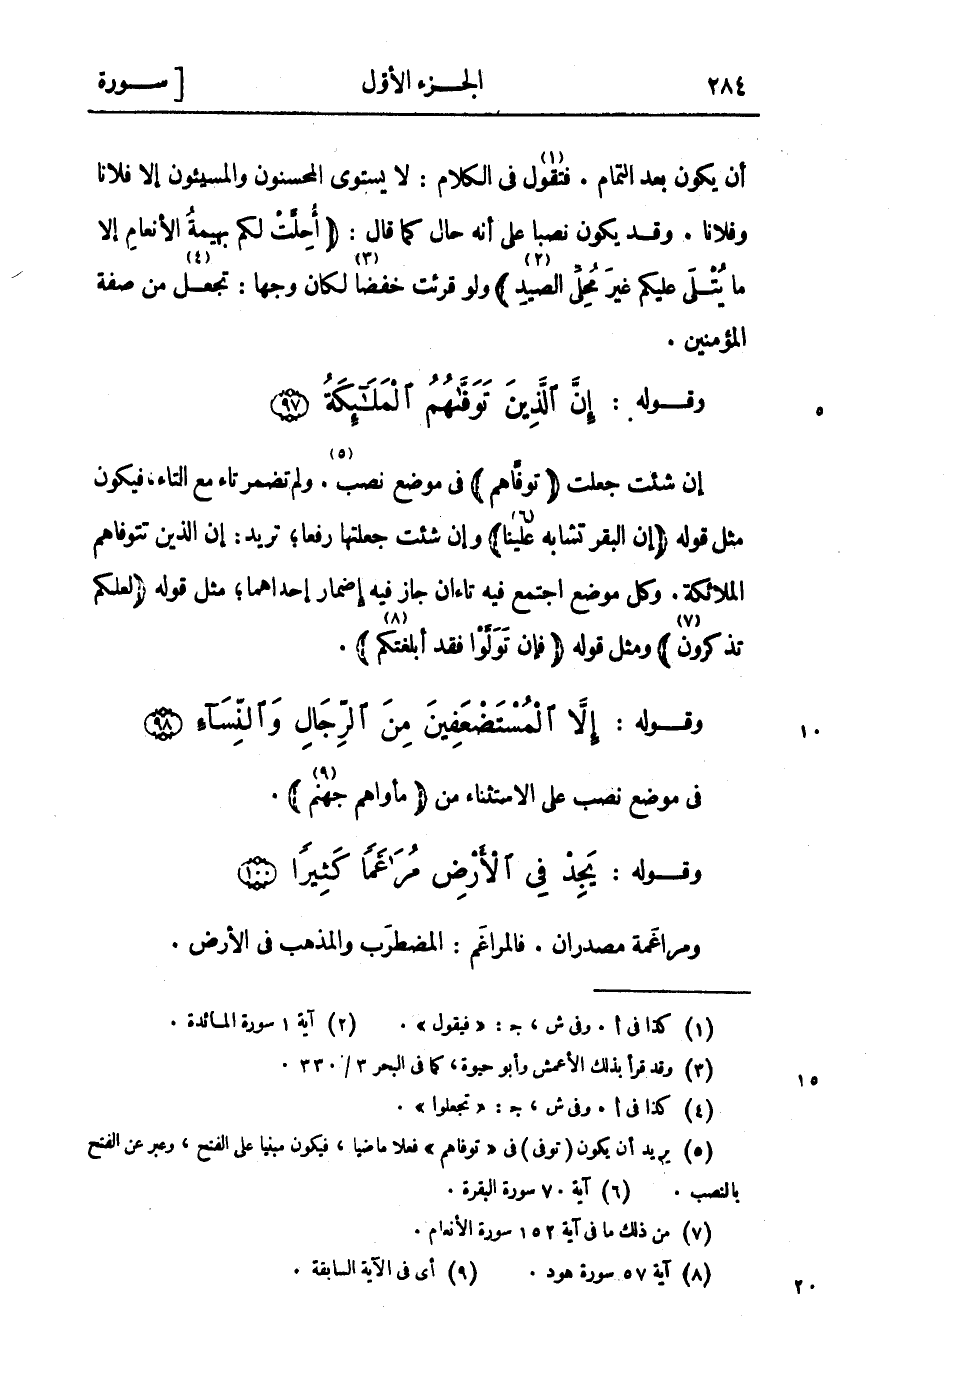 ٢٨٤ الجـزء الأول [ ســورة
أن يكون بعد التمام . فتقول (١) فى الكلام : لا يستوى المحسنون والمسيئون إلا فلانا
وفلانا . وقـد يكون نصبا على أنه حال كما قال : ﴿ أُحِلَّتْ لكم بهيمةُ الأنعامِ إلا
ما يُتْـلَى عليكم غيرَ مُحِلِّى الصيدِ (٢) ﴾ ولو قرئت خفضا (٣) لكان وجها : تجعـل (٤) من صفة
المؤمنين .
وقــوله : إِنَّ ٱلَّذِينَ تَوَفَّىٰهُمُ ٱلْمَلَـٰٓئِكَةُ (٩٧)
٥
إن شئت جعلت ﴿ توفَّاهم ﴾ فى موضع نصب (٥) . ولم تضمر تاء مع التاء، فيكون
مثل قوله ﴿ إن البقر تشابه علينا (٦) ﴾ وإن شئت جعلتها رفعا؛ تريد : إن الذين تتوفاهم
الملائكة . وكل موضع اجتمع فيه تاءان جاز فيه إضمار إحداهما؛ مثل قوله ﴿ لعلكم
تذكرون (٧) ﴾ ومثل قوله ﴿ فإن تَوَلَّوْا فقد أبلغتكم (٨) ﴾ .
وقــوله : إِلَّا ٱلْمُسْتَضْعَفِينَ مِنَ ٱلرِّجَالِ وَٱلنِّسَآءِ (٩٨)
١٠
فى موضع نصب على الاستثناء من ﴿ مأواهم جهنم (٩) ﴾ .
وقــوله : يَجِدْ فِى ٱلْأَرْضِ مُرَٰغَمًا كَثِيرًا (١٠٠)
ومراغَمة مصدران . فالمراغَم : المضطرَب والمذهب فى الأرض .
(١) كذا فى أ . وفى ش ، ج : « فيقول » . (٢) آية ١ سورة المـائدة .
(٣) وقد قرأ بذلك الأعمش وأبو حيوة، كما فى البحر ٣ / ٣٣٠ .
١٥
(٤) كذا فى أ . وفى ش ، ج : « تجعلوا » .
(٥) يريد أن يكون (توفى) فى « توفاهم » فعلا ماضيا ، فيكون مبنيا على الفتح ، وعبر عن الفتح
بالنصب . (٦) آية ٧٠ سورة البقرة .
(٧) من ذلك ما فى آية ١٥٢ سورة الأنعام .
(٨) آية ٥٧ سورة هود . (٩) أى فى الآية السابقة .
٢٠